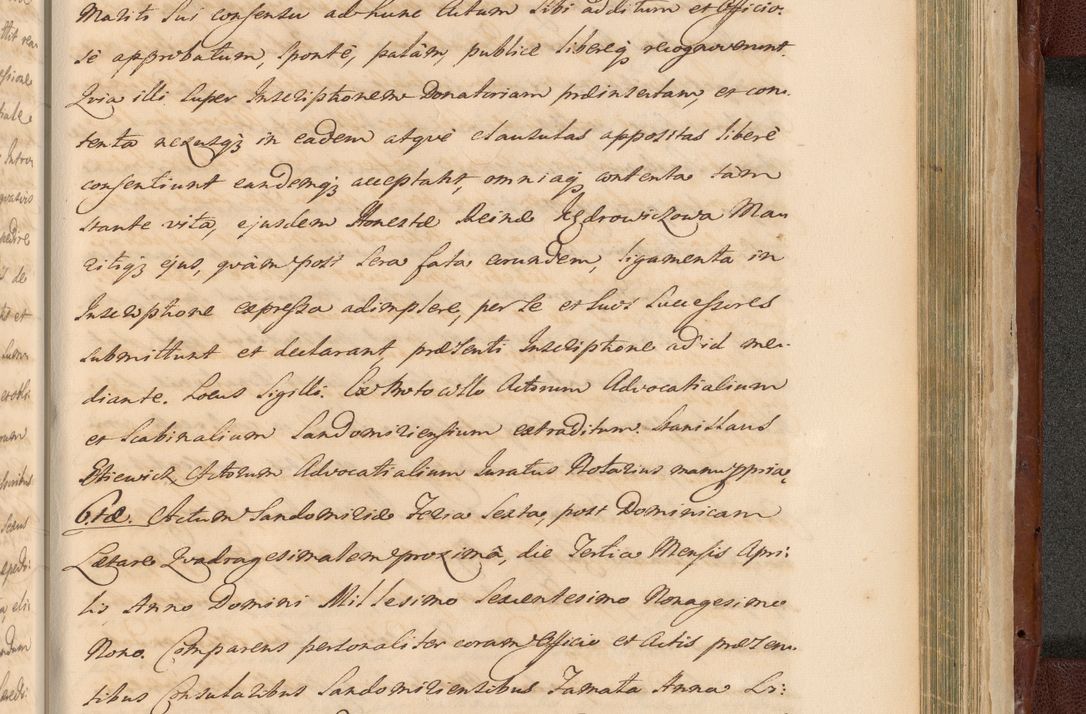 Mariti sui consensu ad hunc actum sibi additum et Officio-
se approbatum, sponte, palam, publice libereq; recognoverunt.
Qvia illi super Inscriptionem Donatoriam præinsertam, et con-
tenta nexusq; in eadem atqve clausulas appositas libere
consentiunt eandemq; acceptant, omniaq; contenta tam
stante vita, ejusdem Honestæ Reinæ Jędrowiczowa Ma-
ritiq; ejus, qvàm post sera fata eorundem, ligamenta in
Inscriptione expressa adimplere, per se et suos Successores
submittunt et declarant, præsenti Inscriptione ad id me-
diante. Locus Sigilli. Ex Protocollo Actorum Advocatialium
et Scabinalium Sandomiriensium extraditum. Stanislaus
Actorum Advocatialium Juratus Notarius manu ppria.
6.tæ. Actum Sandomiriæ Feria Sexta, post Dominicam
Lætare Qvadragesimalem proxima, die Tertia Mensis Apri-
lis Anno Domini Millesimo Sexcentesimo Nonagesimo
Nono. Comparens personaliter coram Officio et Actis præsen-
tibus Consularibus Sandomiriensibus Famata Anna Li-